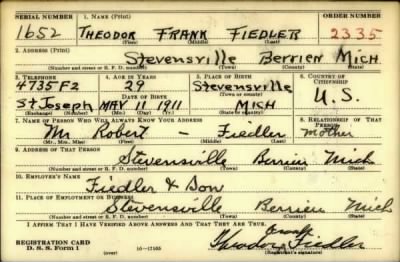 SERIAL NUMBER 1. NAME (Print) ORDER NUMBER
1652 THEODOR FRANK FIEDLER 2335
(First) (Middle) (Last)
2. ADDRESS (Print)
Stevensville Berrien MICH
(Number and street or R. F. D. number) (Town) (County) (State)
3. TELEPHONE 4. AGE IN YEARS 5. PLACE OF BIRTH 6. COUNTRY OF CITIZENSHIP
4735F2 29 Stevensville
DATE OF BIRTH (Town or county)
St Joseph MAY 11 1911 MICH U.S.
(Exchange) (Number) (Mo.) (Day) (Yr.) (State or country)
7. NAME OF PERSON WHO WILL ALWAYS KNOW YOUR ADDRESS 8. RELATIONSHIP OF THAT PERSON
Robert - Fiedler Mother
(Mr., Mrs., Miss) (First) (Middle) (Last)
9. ADDRESS OF THAT PERSON
Stevensville Berrien Mich
(Number and street or R. F. D. number) (Town) (County) (State)
10. EMPLOYER'S NAME
Fiedler & Son
11. PLACE OF EMPLOYMENT OR BUSINESS
Stevensville Berrien Mich
(Number and street or R. F. D. number) (Town) (County) (State)
I AFFIRM THAT I HAVE VERIFIED ABOVE ANSWERS AND THAT THEY ARE TRUE.
Frank
REGISTRATION CARD Theodor Fiedler
D. S. S. Form 1 (over) 16—17105 (Registrant's signature)